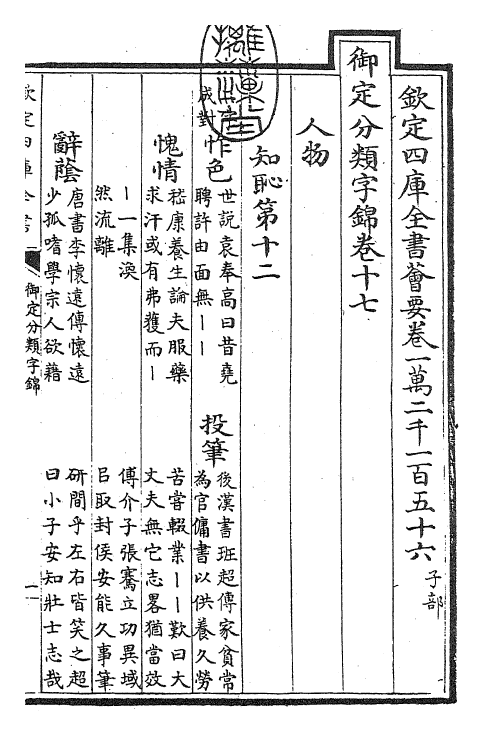 欽定四庫全書薈要卷一萬二千一百五十六 子部
御定分類字錦卷十七
人物
知恥第十二
成對
怍色
世說袁奉高曰昔堯
聘許由面無丨丨
投筆
後漢書班超傳家貧常
為官傭書以供養久勞
苦嘗輟業丨丨歎曰大
丈夫無它志畧猶當效
傅介子張騫立功異域
㠯取封侯安能久事筆
研間乎左右皆笑之超
曰小子安知壯士志哉
愧情
嵇康養生論夫服藥
求汗或有弗獲而丨
丨一集渙
然流離
辭蔭
唐書李懷遠傳懷遠
少孤嗜學宗人欲藉
欽定四庫全書
御定分類字錦
一